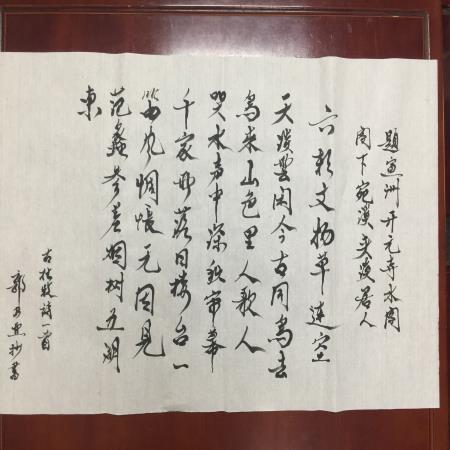 題宣州开元寺水阁
阁下宛溪夹溪居人
六朝文物草連空
天淡雲闲今古同鸟去
鸟来山色里人歌人
哭水声中深秋帘幕
千家雨落日楼台一
笛风惆怅无因見
范蠡参差烟树五湖
東
右杜牧诗一首
郭 抄書